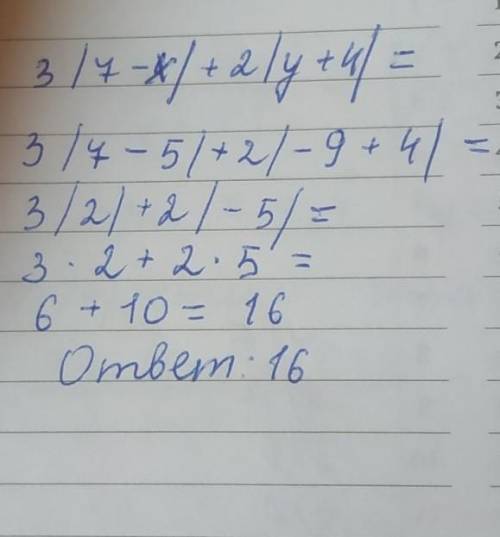 3|7-x|+2|y+4|=
3|7-5|+2|-9+4|=
3|2|+2|-5|=
3·2+2·5=
6+10=16
Ответ: 16